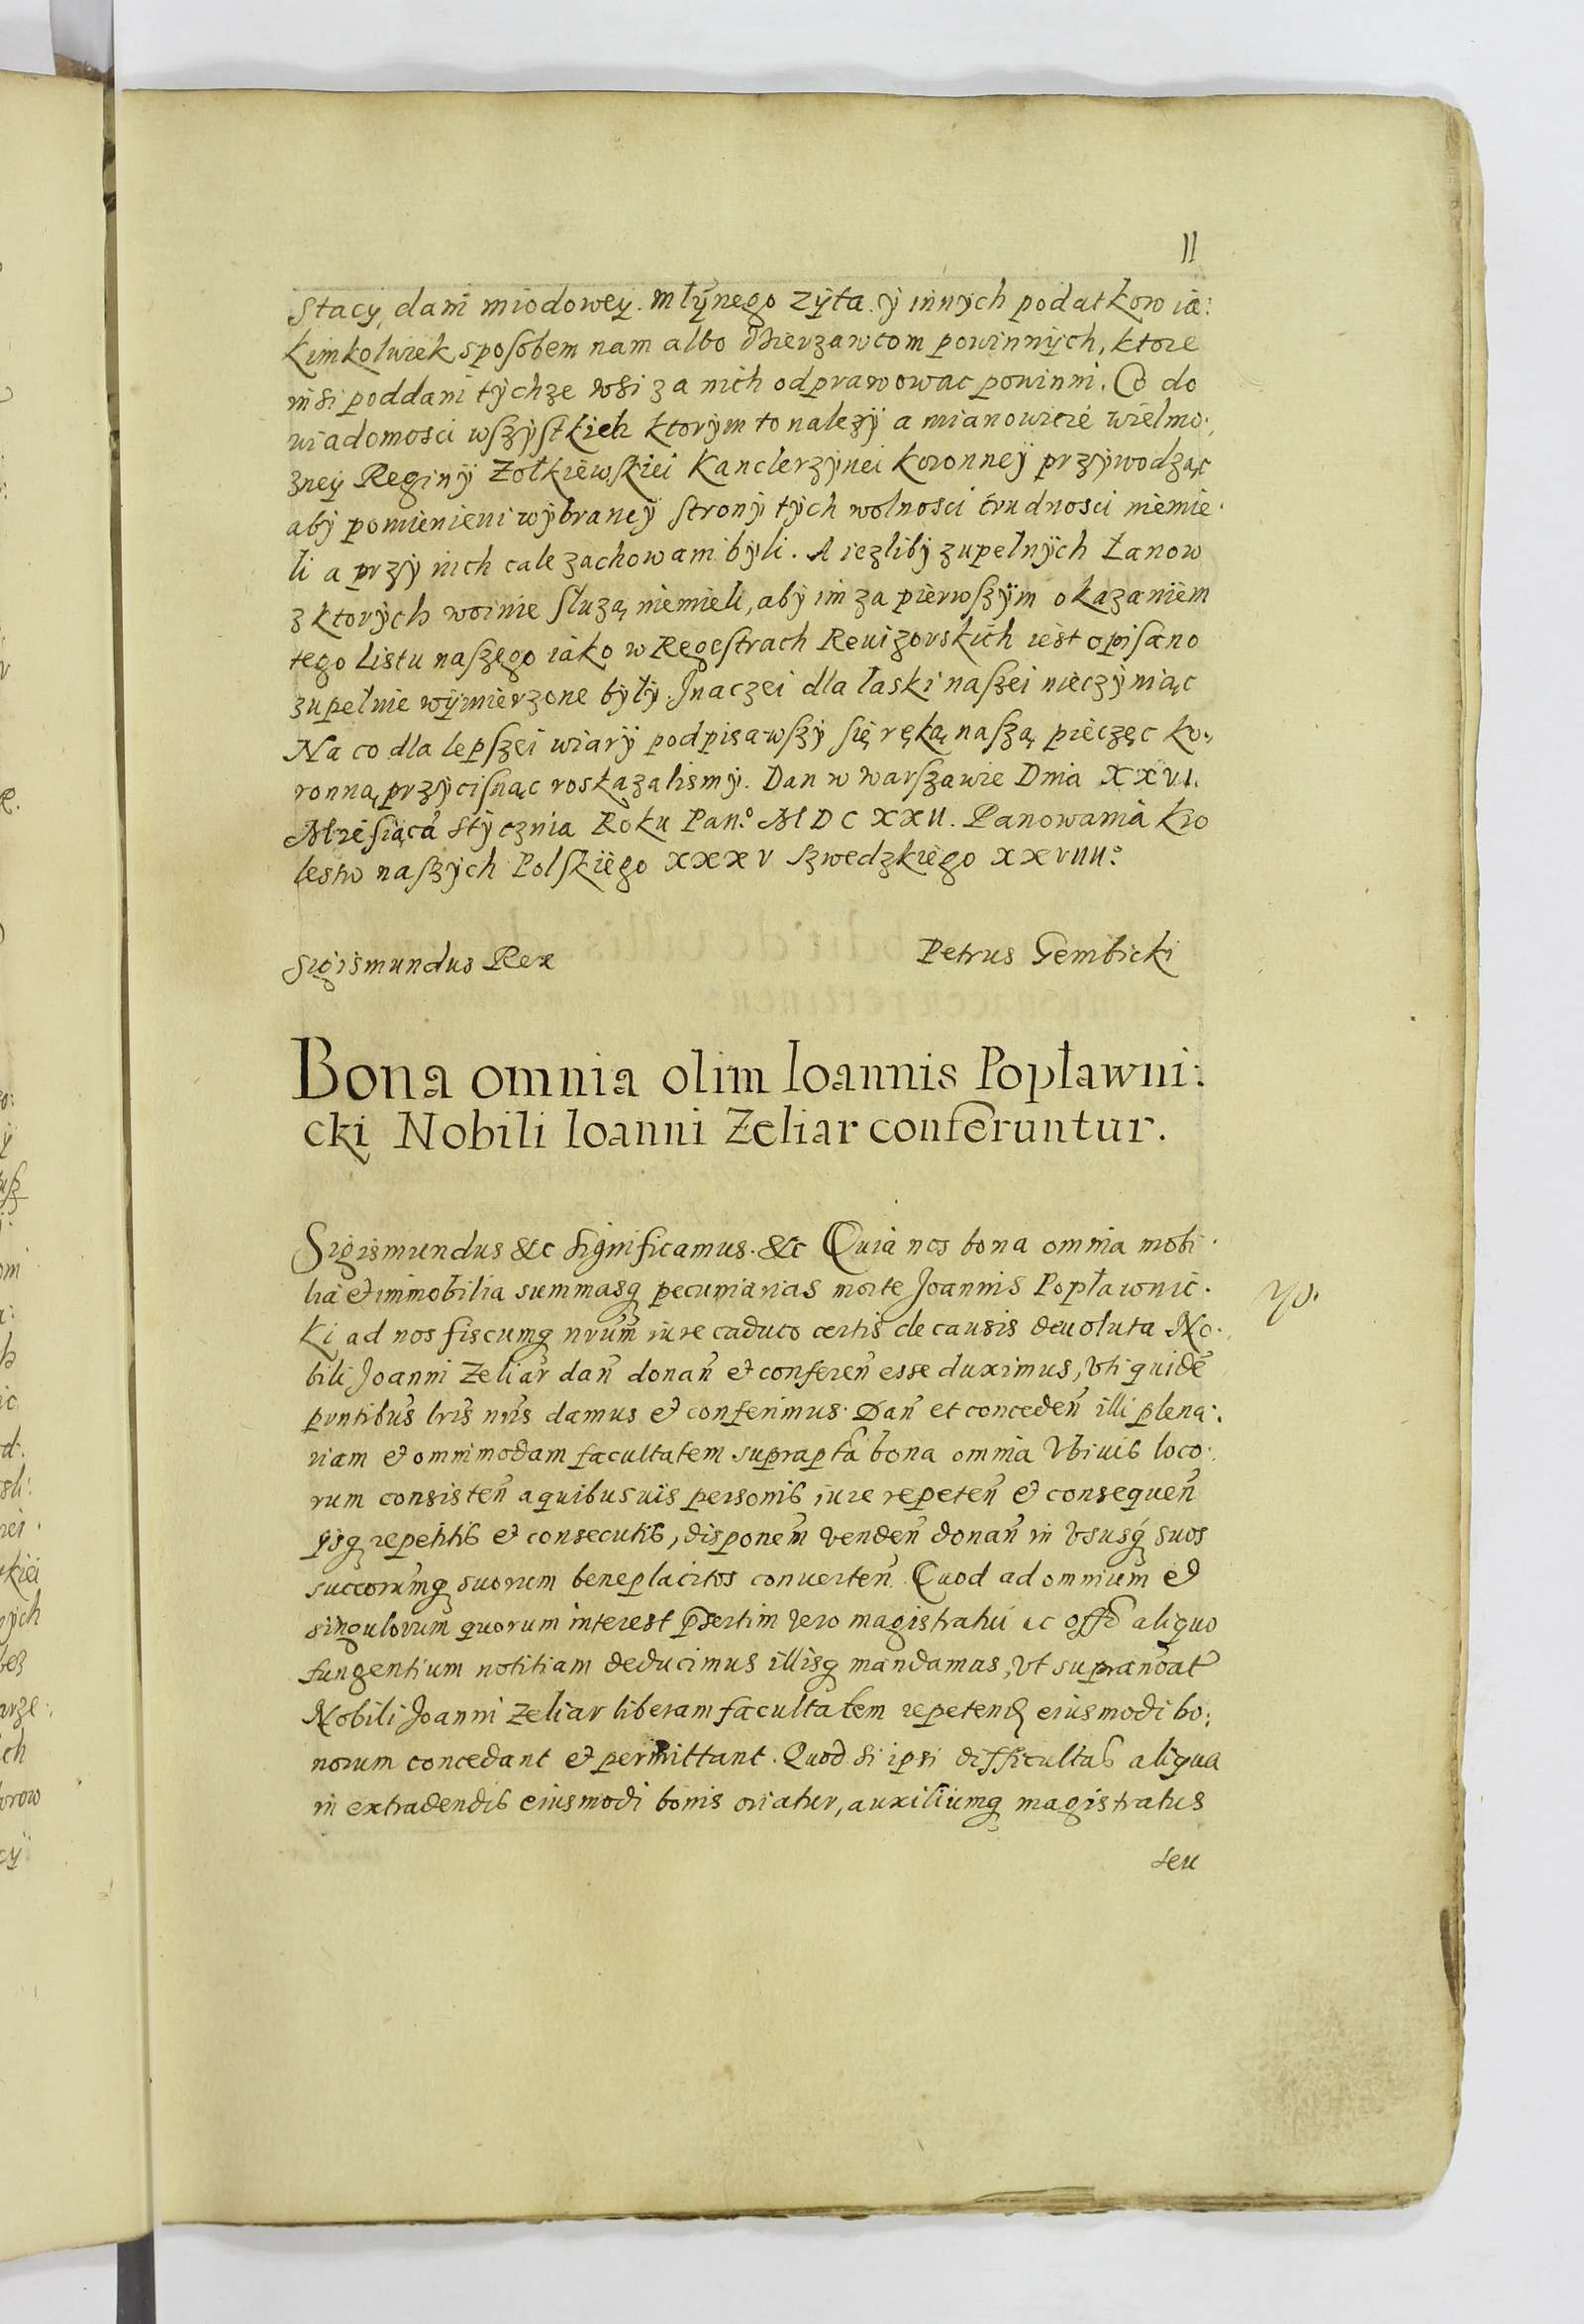 11
Stacy, dani miodowey. młýnego zýta. ý innych podatkow ia:
kimkolwiek sposobem nam albo dzierzawcom powinnÿch, ktore
insi poddani tychze wsi za nich odprawowac powinni. Co do
wiadomosci wszystkich ktorym to nalezÿ a mianowicie wielmo.
zneÿ Reginÿ Zołkiewskiei Kanclerzynei koronneÿ przywodząc
aby pomienieni wybrancÿ strony tych wolnosci trudnosci niemie
li a przy nich cale zachowani byli. A iezliby zupelnÿch Łanow
z ktorych woinie służą niemieli, aby im za pierwszÿm okazaniem
tego Listu naszego iako w Regestrach Reuizorskich iest opisano
zupełnie wÿmierzone były. Jnaczei dla łaski naszei nieczyniąc
Na co dla lepszei wiarÿ podpisawszy się ręką naszą pieczęc ko.
ronną przycisnąc roskazalismy. Dan w warszawie Dnia XXVI.
Miesiąca Stycznia Roku Pan.º MDCXXII. Panowania kro
lestw naszych Polskiego XXXV szwedzkiego XXVIIII.º
Sigismundus Rex Petrus Gembicki
Bona omnia olim Ioannis Popławni:
cki Nobili Ioanni Zeliar conferuntur.
Sigismundus &c significamus. &c Quia nos bona omnia mobi
lia et immobilia summasq pecuniarias morte Joannis Popławnic.
ki ad nos fiscumq nrum iure caduco certis de causis deuoluta No.
yo.
bili Joanni Zeliar dan̄ donan̄ et conferen̄ esse duximus, vti quidē
pntibus lris nris damus et conferimus. Dan̄ et conceden̄ illi plena:
riam et omnimodam facultatem suprapta bona omnia Vbiuis loco:
rum consisten̄ a quibusuis personis iure repeten̄ et consequen̄
ÿsq repetitis et consecutis, disponen̄ venden̄ donan̄ in Vsusq suos
succorumq suorum beneplacitos conuerten̄. Quod ad omnium et
singulorum quorum interest psertim vero magistratu ac offo aliquo
fungentium notitiam deducimus illisq mandamus, vt supranoat
Nobili Joanni Zeliar liberam facultatem repetend eiusmodi bo:
norum concedant et permittant. Quod si ipsi difficultas aliqua
in extradendis eiusmodi bonis oriatur, auxiliumq magistratus
seu